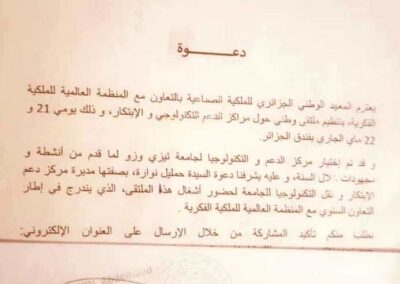 دعـــــوة
يعتزم المعهد الوطني الجزائري للملكية الصناعية بالتعاون مع المنظمة العالمية للملكية
الفكرية، بتنظيم ملتقى وطني حول مراكز الدعم التكنولوجي و الإبتكار، و ذلك يومي 21 و
22 ماي الجاري بفندق الجزائر.
و قد تم إختيار مركز الدعم و التكنولوجيا لجامعة تيزي وزو لما قدم من أنشطة و
مجهودات خلال السنة، و عليه يشرفنا دعوة السيدة حمليل نوارة، بصفتها مديرة مركز دعم
الابتكار و نقل التكنولوجيا للجامعة لحضور أشغال هذا الملتقى، الذي يندرج في إطار
التعاون السنوي مع المنظمة العالمية للملكية الفكرية .
نطلب منكم تأكيد المشاركة من خلال الإرسال على العنوان الإلكتروني: